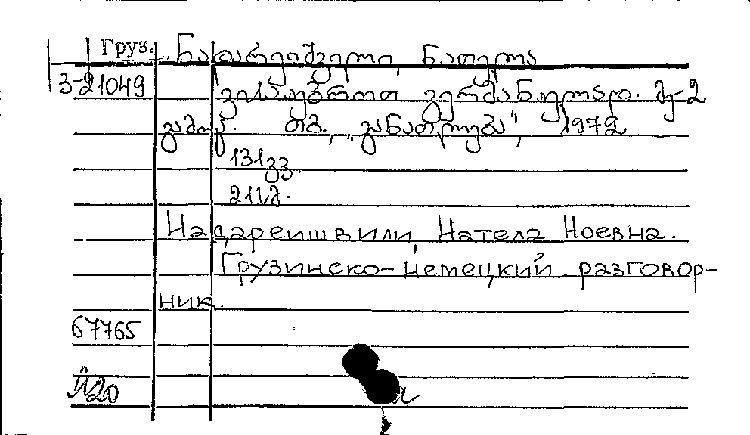 Груз. ნადარეიშვილი, ნათელა
3-21049 ვისაუბროთ გერმანულად. მე-2
გამოც. თბ., „განათლება", 1972
131გვ
211Д.
Надареишвили, Натела Ноевна.
Грузинско-немецкий разговор-
ник.
67765
Л20